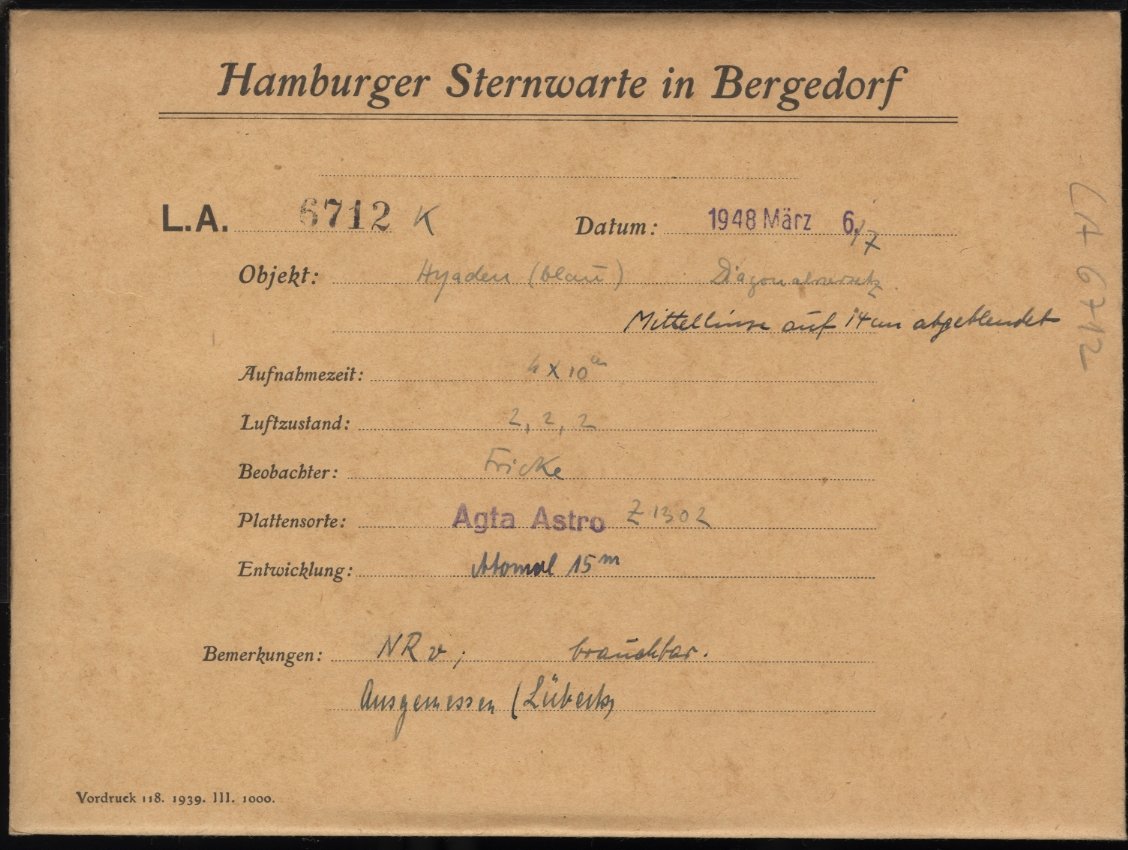 Hamburger Sternwarte in Bergedorf
L.A. 6712 K Datum: 1948 März 6./7
Objekt: Hyaden (blau) Diagonalversatz
Mittellinse auf 14 cm abgeblendet
Aufnahmezeit: 4 x 10m
Luftzustand: 2, 2, 2
Beobachter: Fricke
Plattensorte: Agfa Astro Z 1302
Entwicklung: Atomal 15m
Bemerkungen: NR v; brauchbar.
Ausgemessen (Lübeck)
Vordruck 118. 1939. III. 1000.
LA 6712